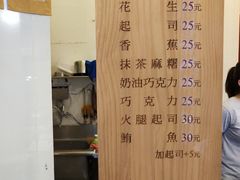 花生 25元
起司 25元
香蕉 25元
抹茶麻糬 25元
奶油巧克力 25元
巧克力 25元
火腿起司 30元
鮪魚 30元
加起司+5元